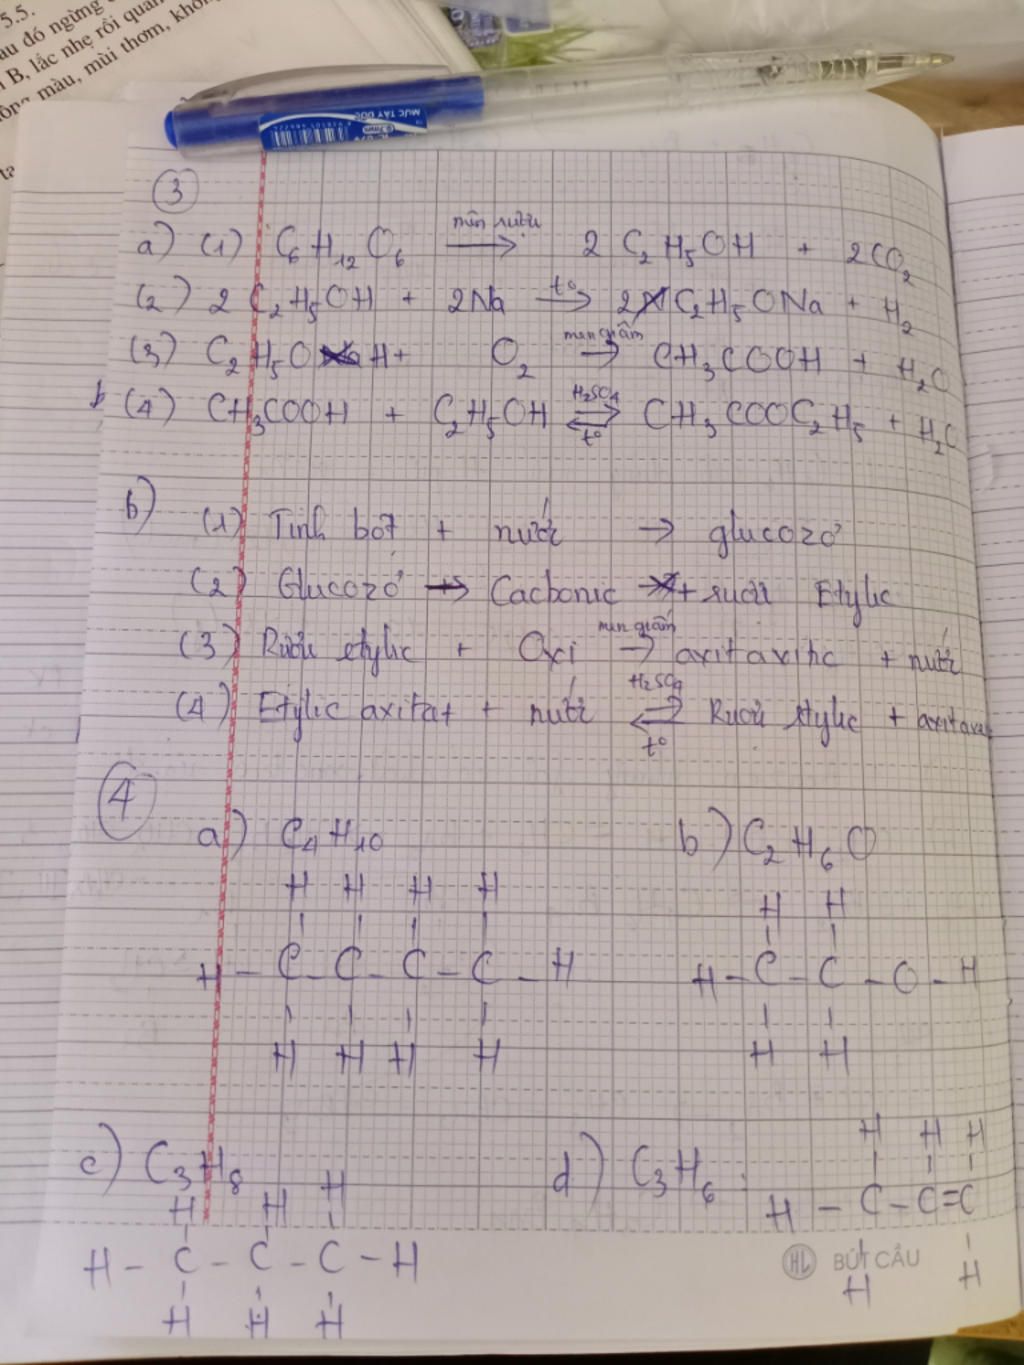 5.5.
au đó ngừng
B, lắc nhẹ rồi quan
màu, mùi thơm, không
MỰC TÂY ĐƯỢC
0.7mm
③
a) (1) C6H12O6 men rượu → 2 C2H5OH + 2CO2
(2) 2 C2H5OH + 2Na t° → 2 C2H5ONa + H2
(3) C2H5OH + O2 men giấm → CH3COOH + H2O
(4) CH3COOH + C2H5OH H2SO4 ⇌ t° CH3COOC2H5 + H2O
b) (1) Tinh bột + nước → glucozơ
(2) Glucozơ → Cacbonic + rượu Etylic
(3) Rượu etylic + Oxi men giấm → axitaxitic + nước
(4) Etylic axitat + nước H2SO4 ⇌ t° Rượu etylic +
④
a) C4H10 b) C2H6O
H H H H H H
H - C - C - C - C - H H - C - C - O - H
H H H H H H
c) C3H8 d) C3H6 :
H H H H H H
H - C - C - C - H H - C - C = C
H H H H H
HL BÚT CẦU